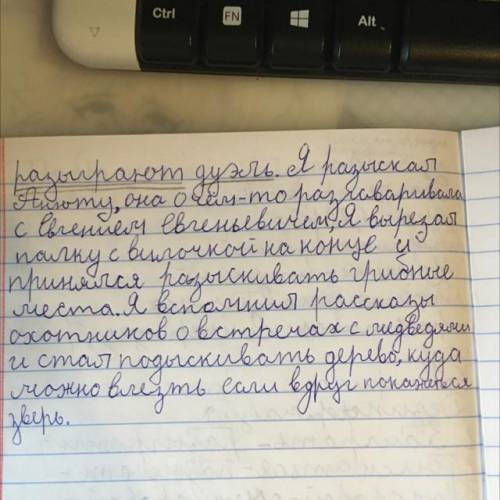 Ctrl FN Alt
разыграют дуэль. Я разыскал
Анюту, она о чём-то разговаривала
с Евгением Евгеньевичем, Я вырезал
палку с вилочкой на конце и
принялся разыскивать грибные
места. Я вспомнил рассказы
охотников о встречах с медведями
и стал подыскивать дерево, куда
можно влезть если вдруг покажеться
зверь.